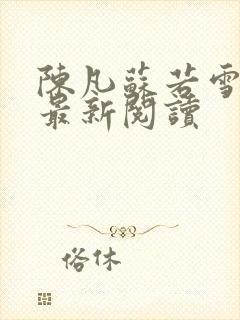 陳凡蘇若雪
最新閱讀
俗休